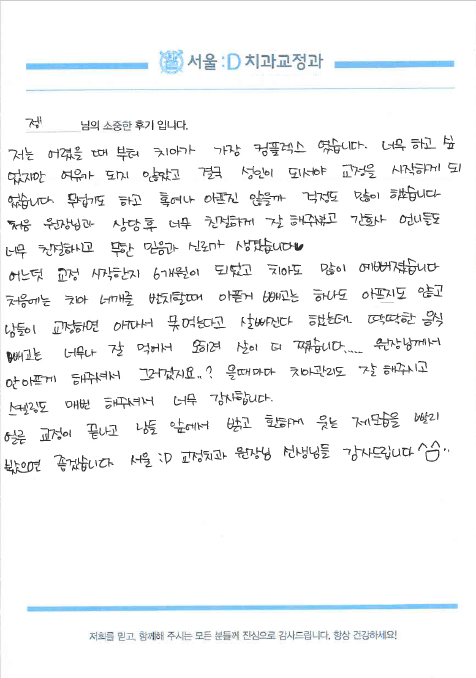 서울:D 치과교정과
정 님의 소중한 후기 입니다.
저는 어렸을 때 부터 치아가 가장 컴플렉스 였습니다. 너무 하고 싶
었지만 여유가 되지 않았고 결국 성인이 되서야 교정을 시작하게 되
었습니다. 무섭기도 하고 혹여나 아프진 않을까 걱정도 많이 했습니다
처음 원장님과 상담후 너무 친절하게 잘 해주셨고 간호사 언니들도
너무 친절하시고 무한 믿음과 신뢰가 생겼습니다♥
어느덧 교정 시작한지 6개월이 되었고 치아도 많이 예뻐졌습니다
처음에는 치아 네개를 발치할때 아픈게 빼고는 하나도 아프지도 않고
남들이 교정하면 아파서 못먹는다고 살빠진다 하는데 딱딱한 음식
빼고는 너무나 잘 먹어서 오히려 살이 더 쪘습니다..... 원장님께서
안아프게 해주셔서 그러겠지요..? 올때마다 치아관리도 잘 해주시고
스켈링도 매번 해주셔서 너무 감사합니다.
얼른 교정이 끝나고 남들 앞에서 밝고 환하게 웃는 제모습을 빨리
봤으면 좋겠습니다 서울 :D 교정치과 원장님 선생님들 감사드립니다^^..
저희를 믿고, 함께해 주시는 모든 분들께 진심으로 감사드립니다. 항상 건강하세요!